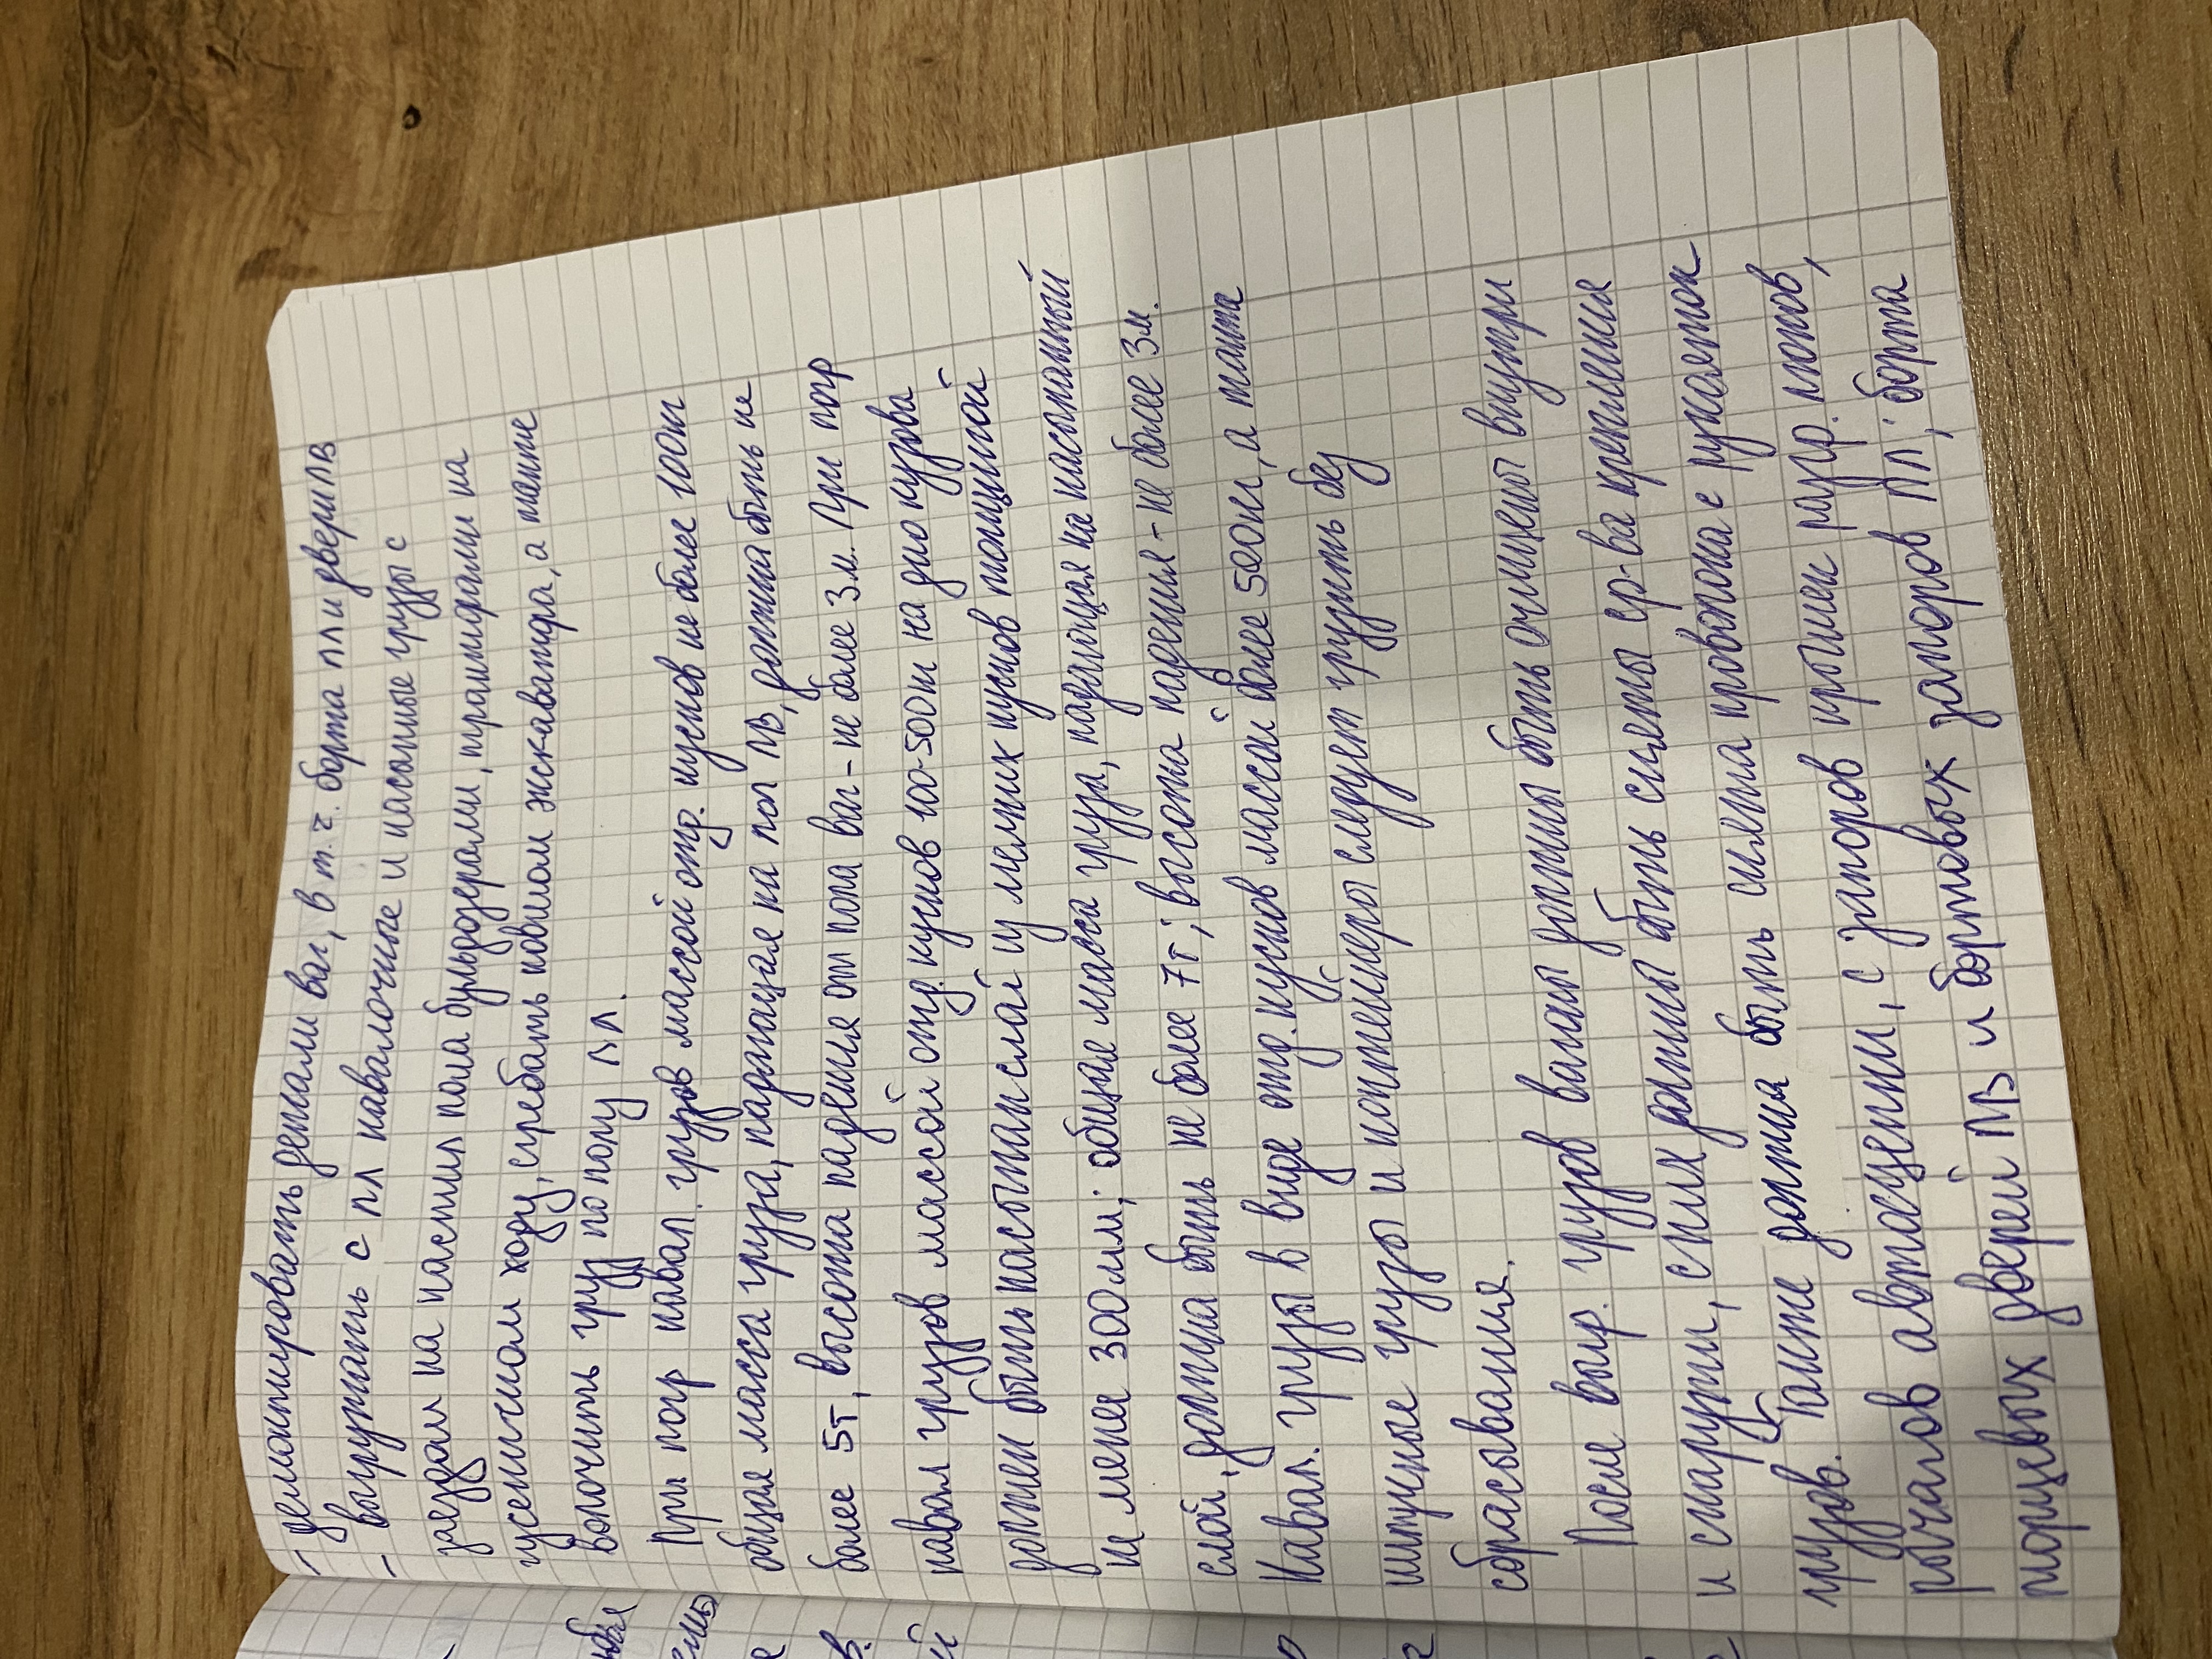 - демонтировать детали ваг, в т.ч. борта пл и двери пв
- выгружать с пл навалочные и насыпные грузы с
заездом на настил пола бульдозерами, трамбовками на
гусеничном ходу, сгребать ковшом экскаватора, а также
волочить груз по полу пл.
При погр навал. грузов массой отд. кусков не более 100кг
общая масса груза, падающая на пол ПВ, должна быть не
более 5т, высота падения от пола ваг - не более 3м. При погр
навал грузов массой отд. кусков 100-500кг на дно кузова
должен быть насыпан слой из мелких кусков толщиной
не менее 300мм; общая масса груза, падающая на насыпанный
слой, должна быть не более 7т; высота падения - не более 3м.
Навал. грузы в виде отд. кусков массой более 500кг, а также
штучные грузы и контейнеры следует грузить без
сбрасывания.
После выгр. грузов вагоны должны быть очищены внутри
и снаружи, с них должны быть сняты ср-ва крепления
грузов. Также должна быть снята проволока с рукояток
рычагов автосцепки, с запоров крышек разгр. люков,
торцевых дверей ПВ и бортовых запоров ПЛ; борта